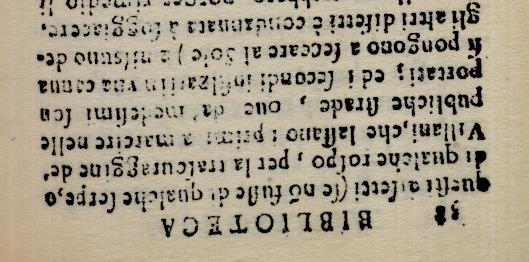 38 BIBLIOTECA
queſti difetti (ſe nō fuſſe di qualche ſerpe,o
di qualche roſpo, per la traſcuraggine de'
Villani,che laſſano i primi a marcire nelle
publiche ſtrade, oue da' medeſimi ſon
portati; ed i ſecondi infilzati in vna canna
ſi pongono a ſeccare al Sole) a niſſuno de-
gli altri difetti è condannata à ſoggiacere,
porger rimedio